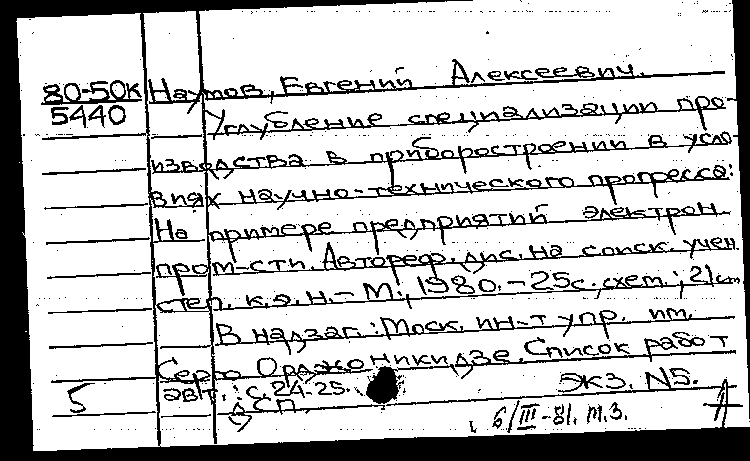 80-50к Наумов, Евгений Алексеевич.
5440 Углубление специализации про-
изводства в приборостроении в усло-
виях научно-технического прогресса:
На примере предприятий электрон.
пром-сти. Автореф. дис. на соиск. учен.
степ. к.э.н. - М., 1980. - 25с. схем.; 21см
В надзаг.: Моск. ин-т упр. им.
Серго Орджоникидзе. Список работ
5 авт.: с. 24-25. ЭКЗ. N5.
ДСП.
6/III-81. т.3.